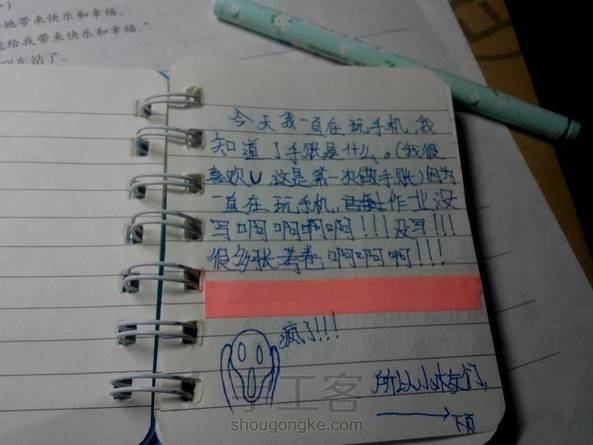 她带来快乐和幸福。
能给我带来快乐和幸福。”
今天我一直在玩手机，我
知道了手账是什么。（我很
喜欢U 这是第一次做手账）因为
一直在玩手机，作业没
写啊啊啊啊啊！！！没写！！！
很多张考卷啊啊啊！！！
疯了！！！
所以小水友们，
下頁
手工客
shougongke.com